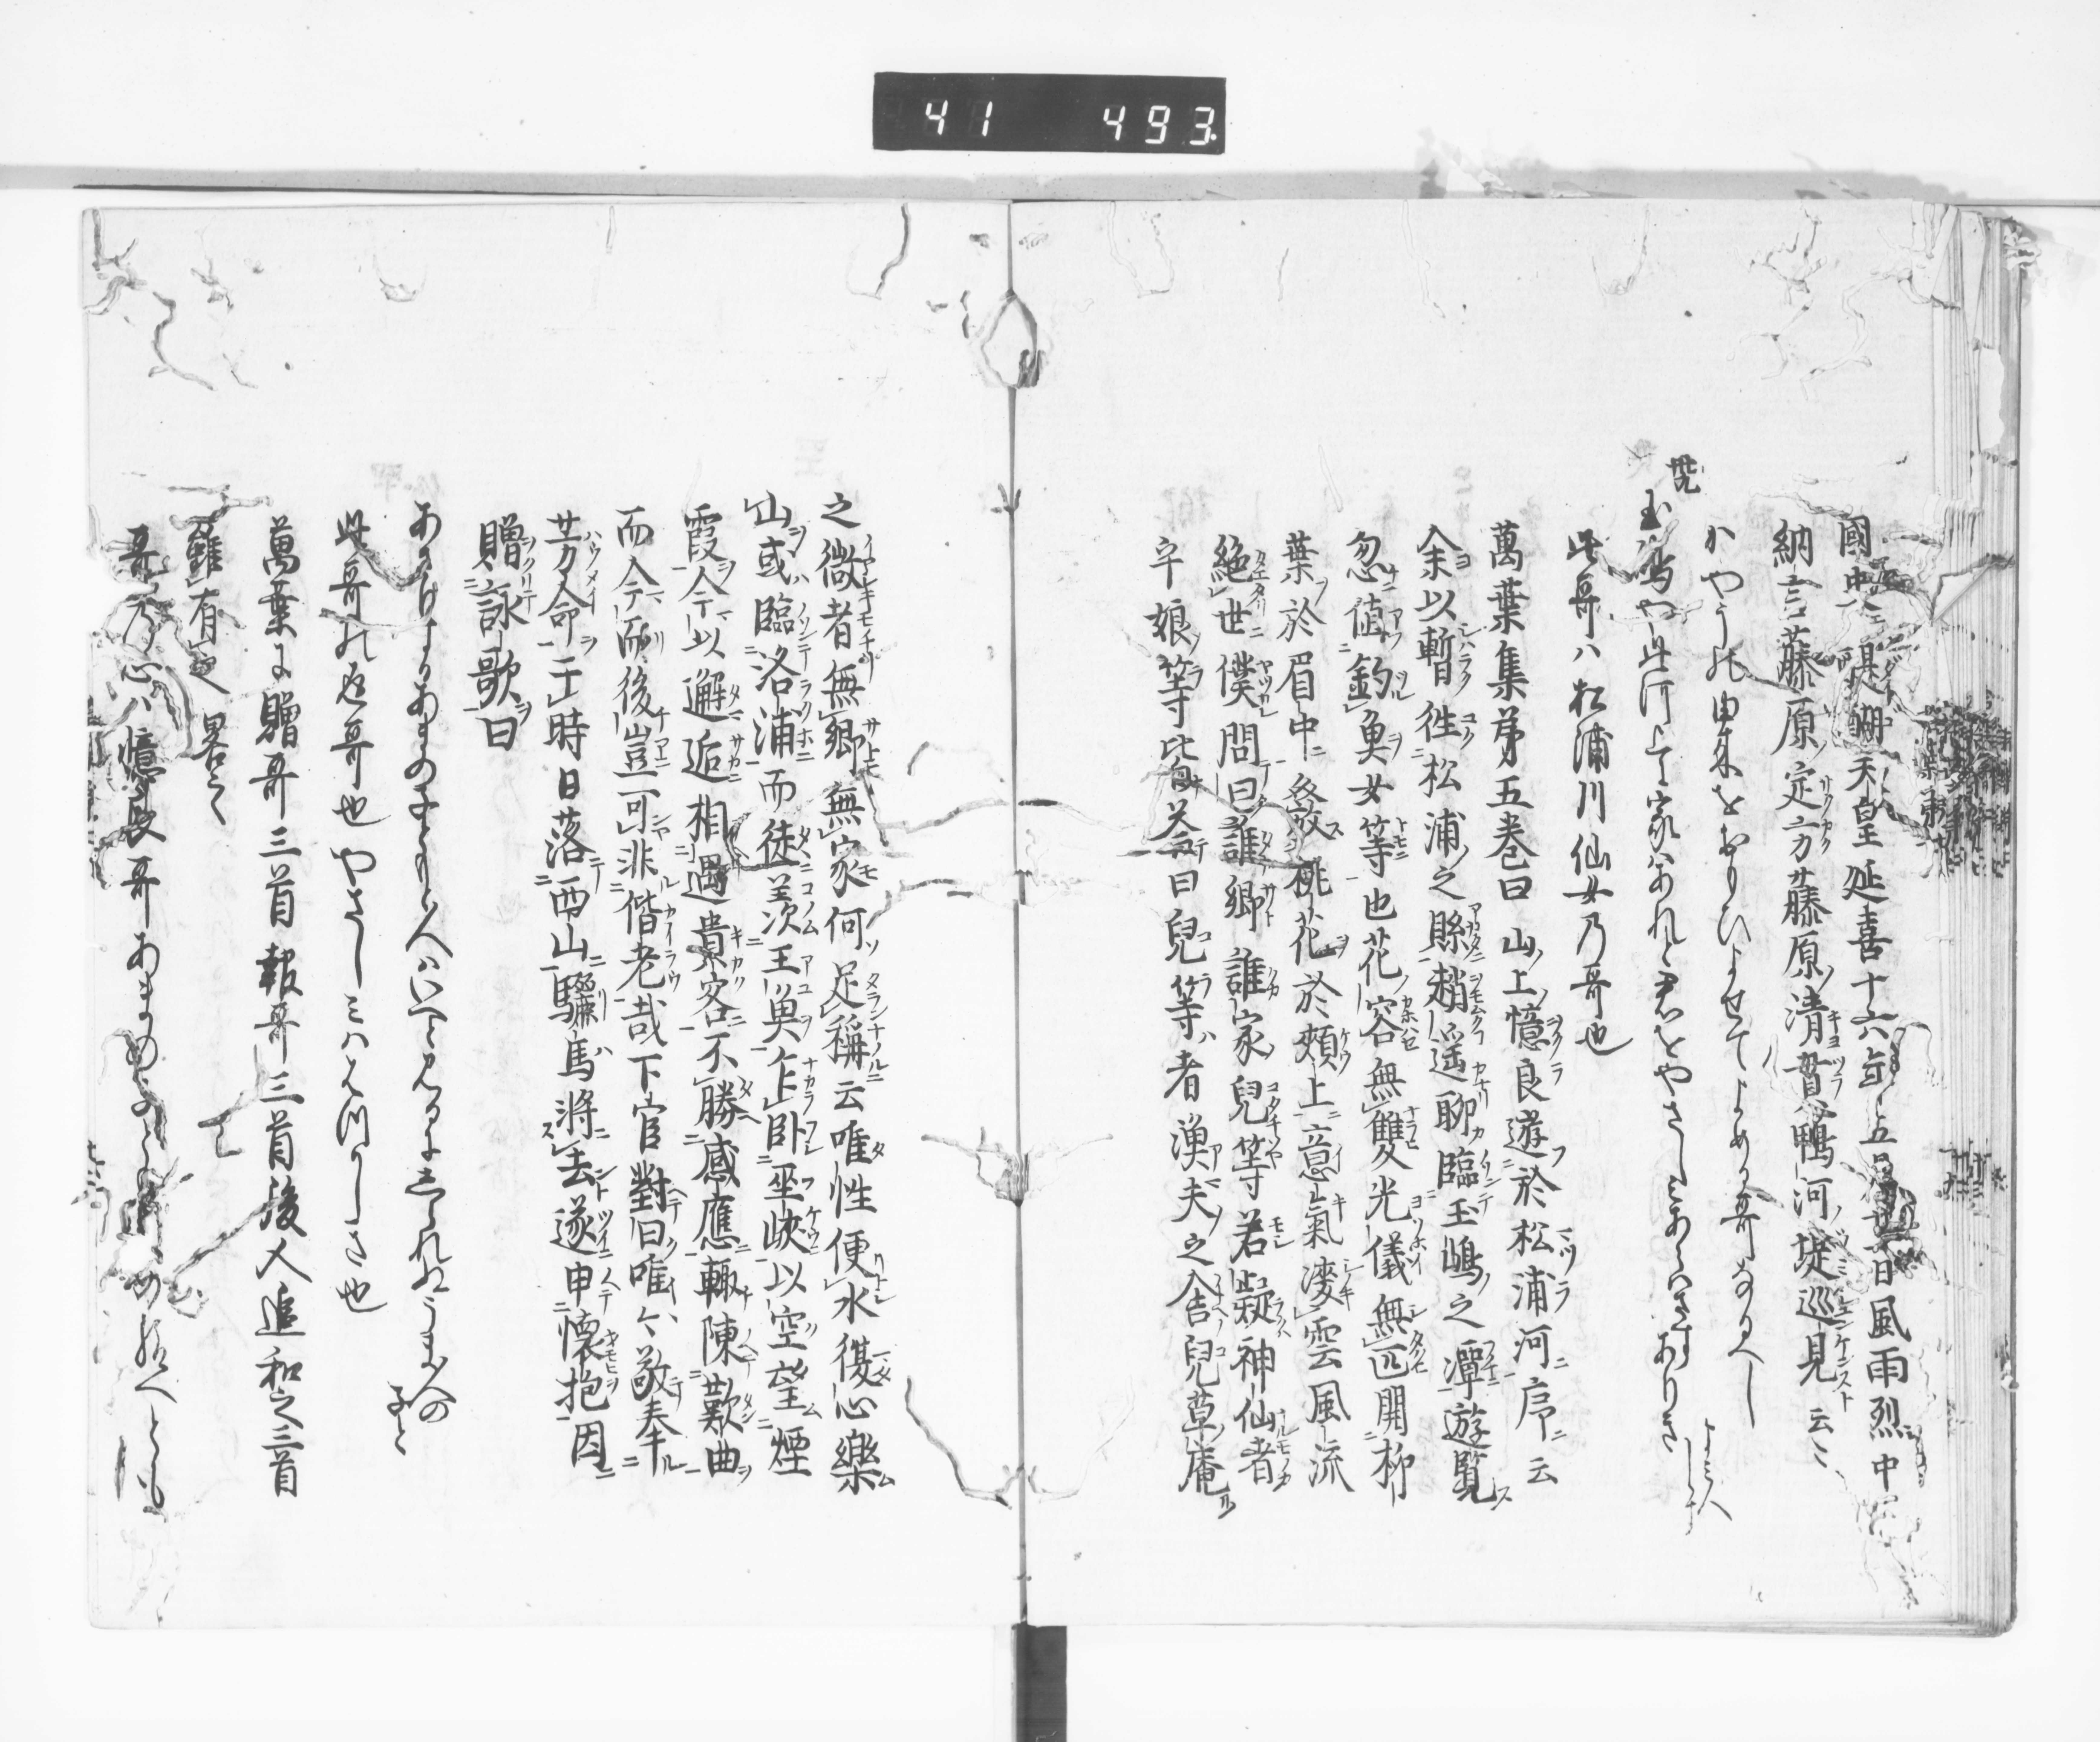 41 493
國史云醍醐天皇延喜十六年五月廿六日風雨烈中
納言藤原定方藤原清貫鴨河堤巡見云〻
かやうの由来をおもひよせてよめる哥なるへし
玉嶋や此河上に家はあれと君をやさしとあらはさすありき
よみ人しらす
此哥ハ松浦川仙女乃哥也
萬葉集第五巻曰山上憶良遊於松浦河序云
余以暫徃松浦之縣趙遥聊臨玉嶋之潭遊覧
忽値釣魚女等也花容無雙光儀無匹開柳
葉於眉中發桃花於頬上意氣凌雲風流
絶世僕問曰誰郷誰家兒等若疑神仙者
乎娘等皆咲曰兒等者漁夫之舎兒草庵
之微者無郷無家何足稱云唯性便水復心樂
山或臨洛浦而徒羨王魚乍臥巫峽以空望煙
霞今以邂逅相遇貴客不勝感應輙陳歎曲
而今而後豈可非偕老哉下官對曰唯〻敬奉
芳命于時日落西山驪馬將去遂申懷抱因
贈詠歌曰
あさりするあまのこともと人はいへと見るにしられぬうま人の
子と
此哥の返哥也やさしミはゝつかしき也
萬葉に贈哥三首報哥三首後人追和之三首
雖有之畧之
哥乃心ハ憶良哥あまの